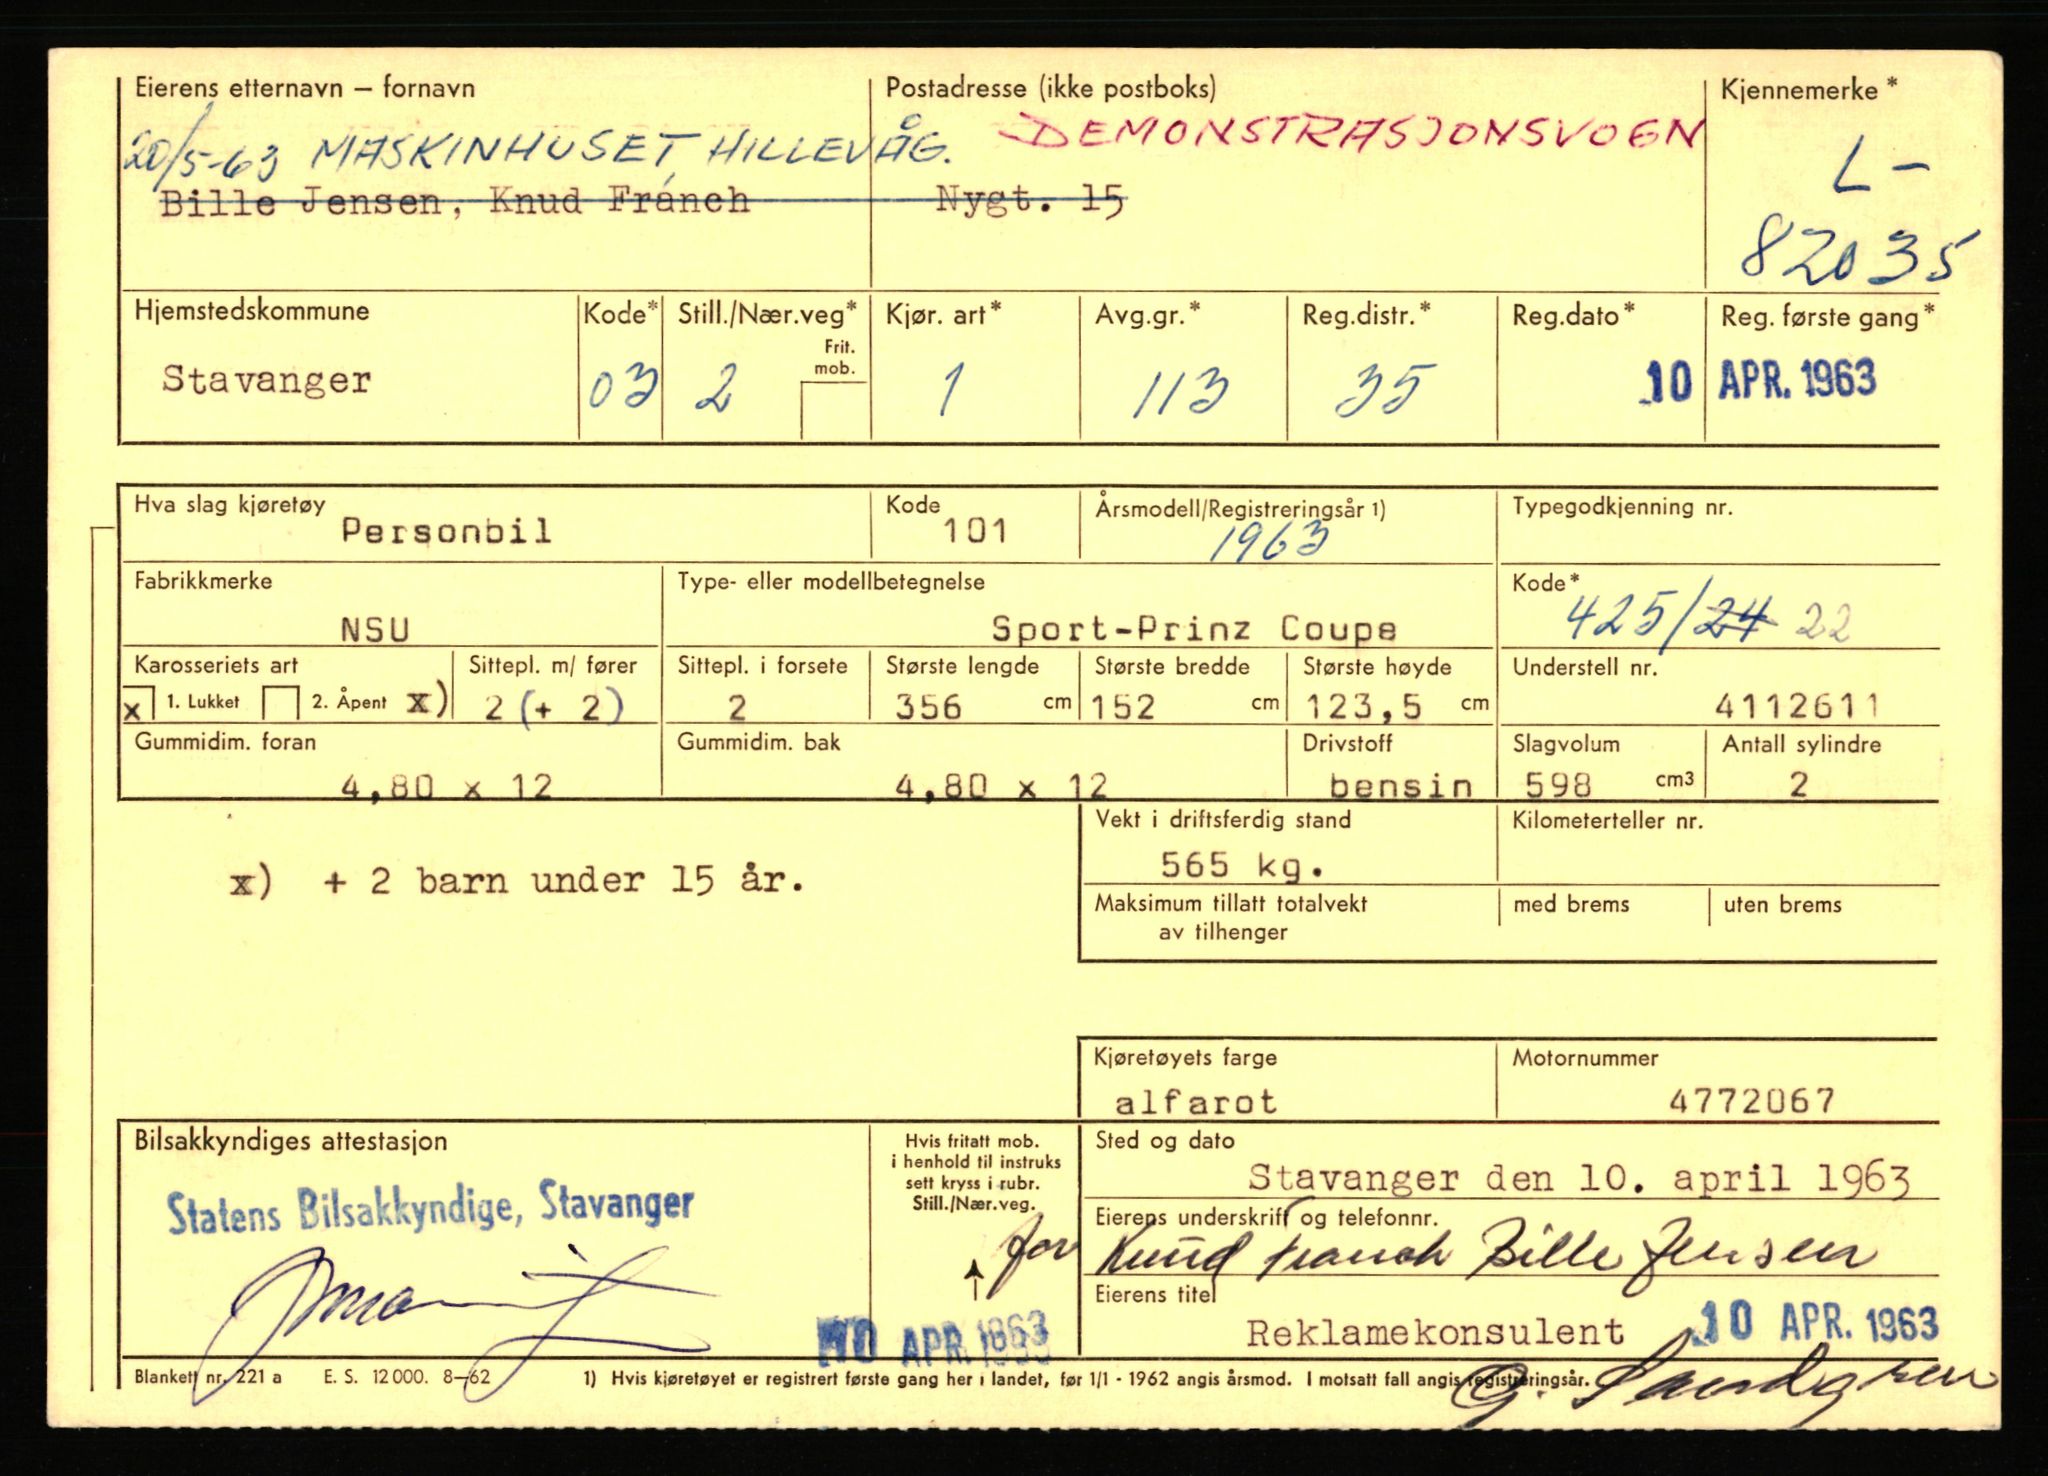 Eierens etternavn – fornavn Postadresse (ikke postboks) Kjennemerke*
20/5-63 MASKINHUSET, HILLEVÅG. DEMONSTRASJONSVOGN L-
Bille Jensen, Knud Franch Nygt. 15
82035
Hjemstedskommune Kode* Still./Nær.veg* Kjør. art* Avg.gr.* Reg.distr.* Reg.dato* Reg. første gang*
Frit. mob.
Stavanger 03 2 1 113 35 10 APR. 1963
Hva slag kjøretøy Kode Årsmodell/Registreringsår 1) Typegodkjenning nr.
Personbil 101 1963
Fabrikkmerke Type- eller modellbetegnelse Kode*
NSU Sport-Prinz Coupe 425/24 22
Karosseriets art Sittepl. m/ fører Sittepl. i forsete Største lengde Største bredde Største høyde Understell nr.
x 1. Lukket 2. Åpent x) 2 (+ 2) 2 356 cm 152 cm 123,5 cm 4112611
Gummidim. foran Gummidim. bak Drivstoff Slagvolum Antall sylindre
4,80 x 12 4,80 x 12 bensin 598 cm3 2
Vekt i driftsferdig stand Kilometerteller nr.
565 kg.
x) + 2 barn under 15 år.
Maksimum tillatt totalvekt av tilhenger med brems uten brems
Kjøretøyets farge Motornummer
alfarot 4772067
Bilsakkyndiges attestasjon Hvis fritatt mob. i henhold til instruks sett kryss i rubr. Still./Nær.veg. Sted og dato
Stavanger den 10. april 1963
Statens Bilsakkyndige, Stavanger
Eierens underskrift og telefonnr.
for Knud Franch Bille Jensen
Eierens titel
10 APR. 1963 Reklamekonsulent 10 APR. 1963
Blankett nr. 221 a E. S. 12000. 8–62 1) Hvis kjøretøyet er registrert første gang her i landet, før 1/1 - 1962 angis årsmod. I motsatt fall angis registreringsår.
G. Sandgren